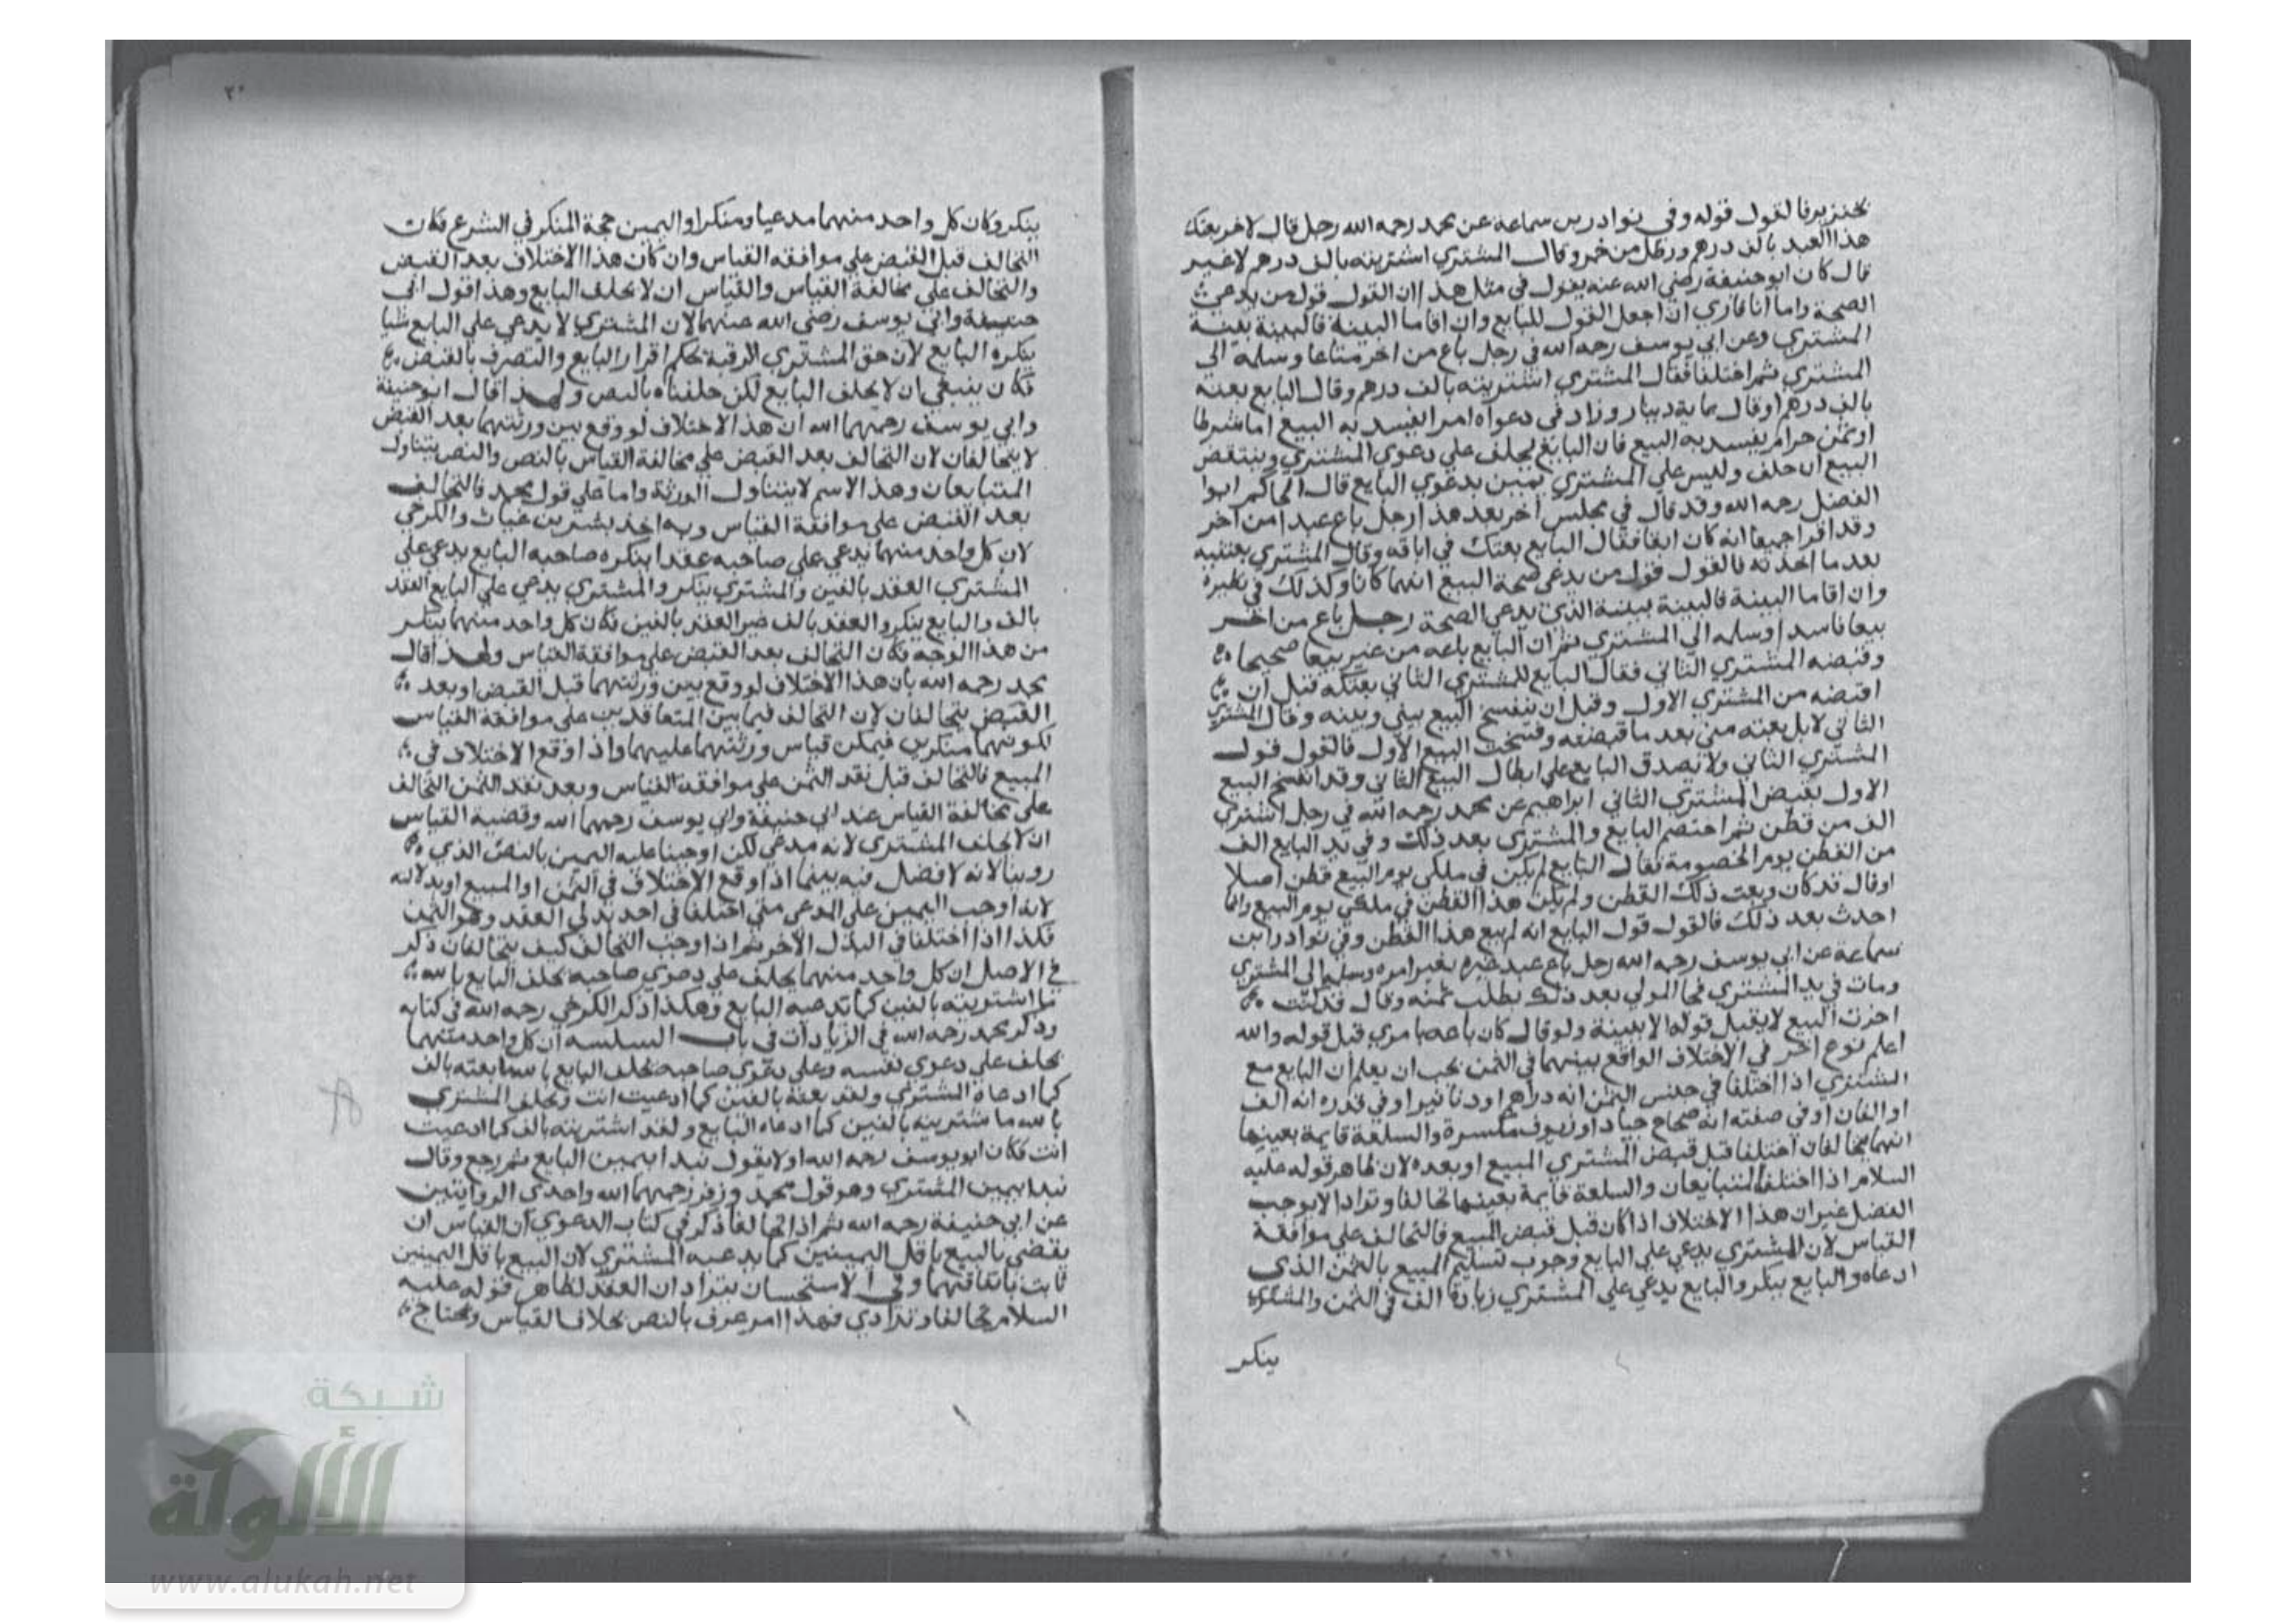 بخنزير فالقول قوله وفي نوادر بن سماعة عن محمد رحمه الله رجل قال لاخر بعتك
هذا العبد بالف درهم ورطل من خمر وقال المشتري اشتريته بالف درهم لا غير
قال كان ابو حنيفة رضي الله عنه يقول في مثل هذا ان القول قول من يدعي
الصحة واما انا فاري ان اجعل القول للبايع وان اقاما البينة فالبينة بينة
المشتري وعن ابي يوسف رحمه الله في رجل باع من اخر متاعا وسلمه الى
المشتري ثم اختلفا فقال المشتري اشتريته بالف درهم وقال البايع بعته
بالف درهم او قال بماية دينار وزاد في دعواه امرا يفسد به البيع اما شرطا
او ثمن حرام يفسد به البيع فان البايع يحلف علي دعوي المشتري وينتقض
البيع ان حلف وليس علي المشتري يمين بدعوي البايع قال الحاكم ابوا
الفضل رحمه الله وقد قال في مجلس اخر بعد هذا رجل باع عبدا من اخر
وقد اقرا جميعا انه كان ابقا فقال البايع بعتك في اباقه وقال المشتري بعتنيه
بعد ما اخذته فالقول قول من يدعي صحة البيع ايهما كان وكذلك في نظيره
وان اقاما البينة فالبينة بينة الذي يدعي الصحة رجل باع من اخر
بيعا فاسدا وسلمه الي المشتري ثم ان البايع باعه من غير بيعا صحيحا
وقبضه المشتري الثاني فقال البايع للمشتري الثاني بعتكه قبل ان
اقبضه من المشتري الاول وقبل ان ينفسخ البيع بيني وبينه وقال المشتري
الثاني لا بل بعته مني بعد ما قبضته وفسخت البيع الاول فالقول قول
المشتري الثاني ولا يصدق البايع علي ابطال البيع الثاني وقد انفسخ البيع
الاول بقبض المشتري الثاني ابراهيم عن محمد رحمه الله في رجل اشتري
الف من قطن ثم اختصم البايع والمشتري بعد ذلك وفي يد البايع الف
من القطن يوم الخصومة فقال البايع لم يكن في ملكي يوم البيع قطن اصلا
او قال قد كان وبعت ذلك القطن ولم يكن هذا القطن في ملكي يوم البيع وانما
احدث بعد ذلك فالقول قول البايع انه لم يبع هذا القطن وفي نوادر ابن
سماعة عن ابي يوسف رحمه الله رجل باع عبد غيره بغير امره وسلمه الى المشتري
ومات في يد المشتري فجا المولي بعد ذلك يطلب ثمنه وقال قد كنت
اجزت البيع لا يقبل قوله الا ببينة ولو قال كان باعه بامري قبل قوله والله
اعلم نوع اخر في الاختلاف الواقع بينهما في الثمن يجب ان يعلم ان البايع مع
المشتري اذا اختلفا في جنس الثمن انه دراهم او دنانير او في قدره انه الف
او الفان او في صفته انه صحاح جياد او زيوف مكسرة والسلعة قايمة بعينها
انهما يتحالفان اختلفا قبل قبض المشتري المبيع او بعده لان ظاهر قوله عليه
السلام اذا اختلفا المتبايعان والسلعة قايمة بعينها تحالفا وترادا لا يوجب
الفصل غير ان هذا الاختلاف اذا كان قبل قبض المبيع فالتحالف علي موافقة
القياس لان المشتري يدعي علي البايع وجوب تسليم المبيع بالثمن الذي
ادعاه والبايع ينكر والبايع يدعي علي المشتري زيادة الف في الثمن والمشتري
ينكر
٣٠
ينكر وكان كل واحد منهما مدعيا ومنكرا واليمين حجة المنكر في الشرع فكان
التحالف قبل القبض علي موافقة القياس وان كان هذا الاختلاف بعد القبض
والتحالف علي مخالفة القياس والقياس ان لا يحلف البايع وهذا قول ابي
حنيفة وابي يوسف رضي الله عنهما لان المشتري لا يدعي علي البايع شيا
ينكره البايع لان حق المشتري الرقبة بحكم اقرار البايع والتصرف بالقبض
فكان ينبغي ان لا يحلف البايع لكن حلفناه بالنص ولهذا قال ابو حنيفة
وابي يوسف رحمهما الله ان هذا الاختلاف لو وقع بين ورثتهما بعد القبض
لا يتحالفان لان التحالف بعد القبض علي مخالفة القياس بالنص والنص يتناول
المتبايعان وهذا الاسم لا يتناول الورثة واما علي قول محمد فالتحالف
بعد القبض علي موافقة القياس وبه اخذ بشر بن غياث والكرخي
لان كل واحد منهما يدعي علي صاحبه عقدا ينكره صاحبه البايع يدعي علي
المشتري العقد بالفين والمشتري ينكر والمشتري يدعي علي البايع العقد
بالف والبايع ينكر والعقد بالف غير العقد بالفين فكان كل واحد منهما ينكر
من هذا الوجه فكان التحالف بعد القبض علي موافقة القياس ولهذا قال
محمد رحمه الله بان هذا الاختلاف لو وقع بين ورثتهما قبل القبض او بعد
القبض يتحالفان لان التحالف فيما بين المتعاقدين علي موافقة القياس
لكونهما منكرين فيمكن قياس ورثتهما عليهما واذا وقع الاختلاف في
المبيع فالتحالف قبل نقد الثمن علي موافقة القياس وبعد نقد الثمن التحالف
علي مخالفة القياس عند ابي حنيفة وابي يوسف رحمهما الله وقضية القياس
ان لا يحلف المشتري لانه مدعي لكن اوجبنا عليه اليمين بالنص الذي
روينا لانه لا فصل فيه بينما اذا وقع الاختلاف في الثمن او المبيع او بدلانه
لانه اوجب اليمين علي المدعي متي اختلفا في احد بدلي العقد وهو الثمن
فكذا اذا اختلفا في البدل الاخر ثم اذا وجب التحالف كيف يتحالفان ذكر
في الاصل ان كل واحد منهما يحلف علي دعوي صاحبه يحلف البايع بالله
ما اشتريته بالفين كما يدعيه البايع وهكذا ذكر الكرخي رحمه الله في كتابه
وذكر محمد رحمه الله في الزيادات في باب السلسه ان كل واحد منهما
يحلف علي دعوي نفسه وعلي دعوي صاحبه يحلف البايع بالله ما بعته بالف
كما ادعاه المشتري ولقد بعته بالفين كما ادعيت انت ويحلف المشتري
بالله ما اشتريته بالفين كما ادعاه البايع ولقد اشتريته بالف كما ادعيت
انت فكان ابو يوسف رحمه الله اولا يقول يبدا بيمين البايع ثم رجع وقال
يبدا بيمين المشتري وهو قول محمد وزفر رحمهما الله واحدي الروايتين
عن ابي حنيفة رحمه الله ثم اذا تحالفا ذكر في كتاب الدعوي ان القياس ان
يقضي بالبيع باقل اليمينين كما يدعيه المشتري لان البيع باقل اليمينين
ثابت باتفاقهما وفي الاستحسان يترادان العقد لظاهر قوله عليه
السلام تحالفا وترادي فهذا امر عرف بالنص بخلاف القياس ويحتاج
شبكة
الألوكة
www.alukah.net